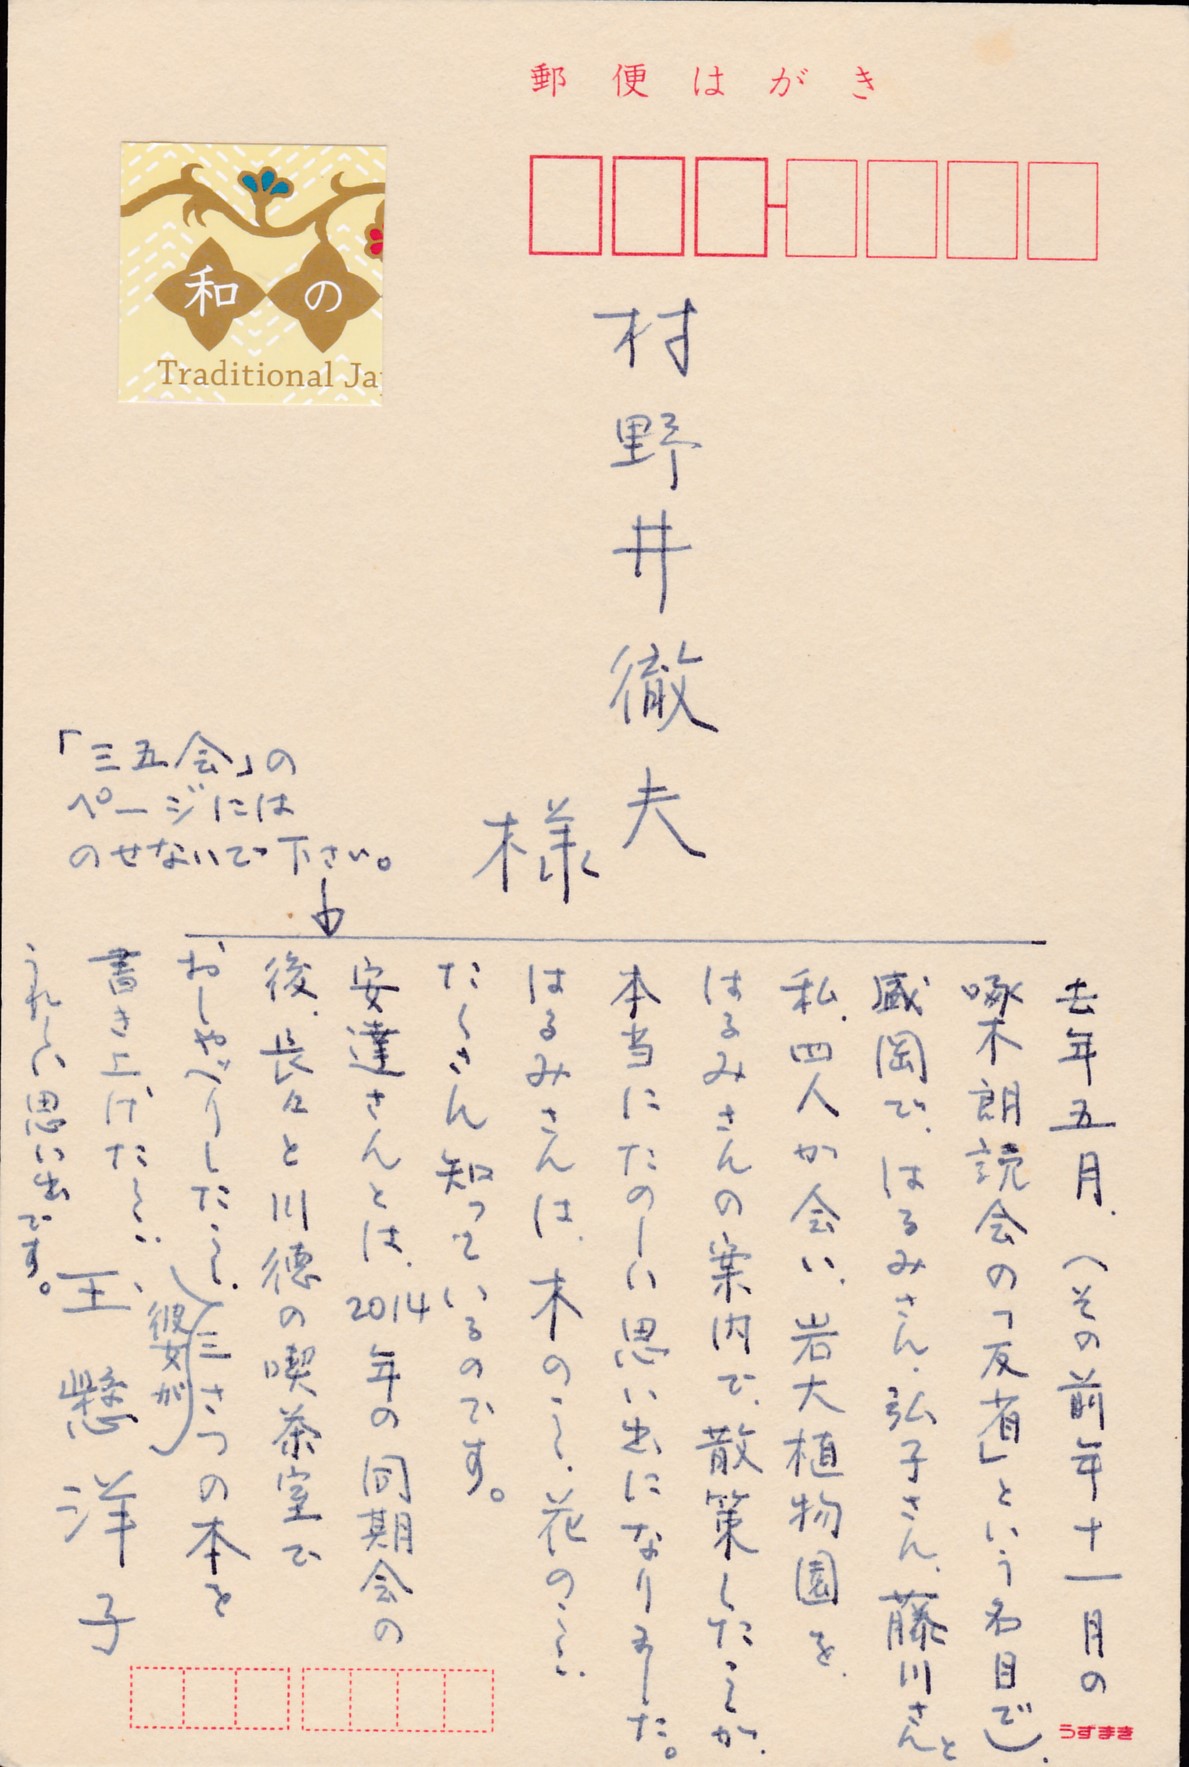 郵便はがき
和の
Traditional Ja
村野井徹夫
様
「三五会」の
ページには
のせないで下さい。
去年五月、(その前年十一月の
啄木朗読会の「反省」という名目で)、
盛岡で、はるみさん、弘子さん、藤川さんと
私、四人が会い、岩大植物園を、
はるみさんの案内で、散策したことが、
本当にたのしい思い出になりました。
はるみさんは、木のこと、花のこと、
たくさん知っているのです。
安達さんとは、2014年の同期会の
後、長々と川徳の喫茶室で
おしゃべりしたこと、三さつの本を
(彼女が)
書き上げたこと、
うれしい思い出です。
王 懸洋子
うずまき